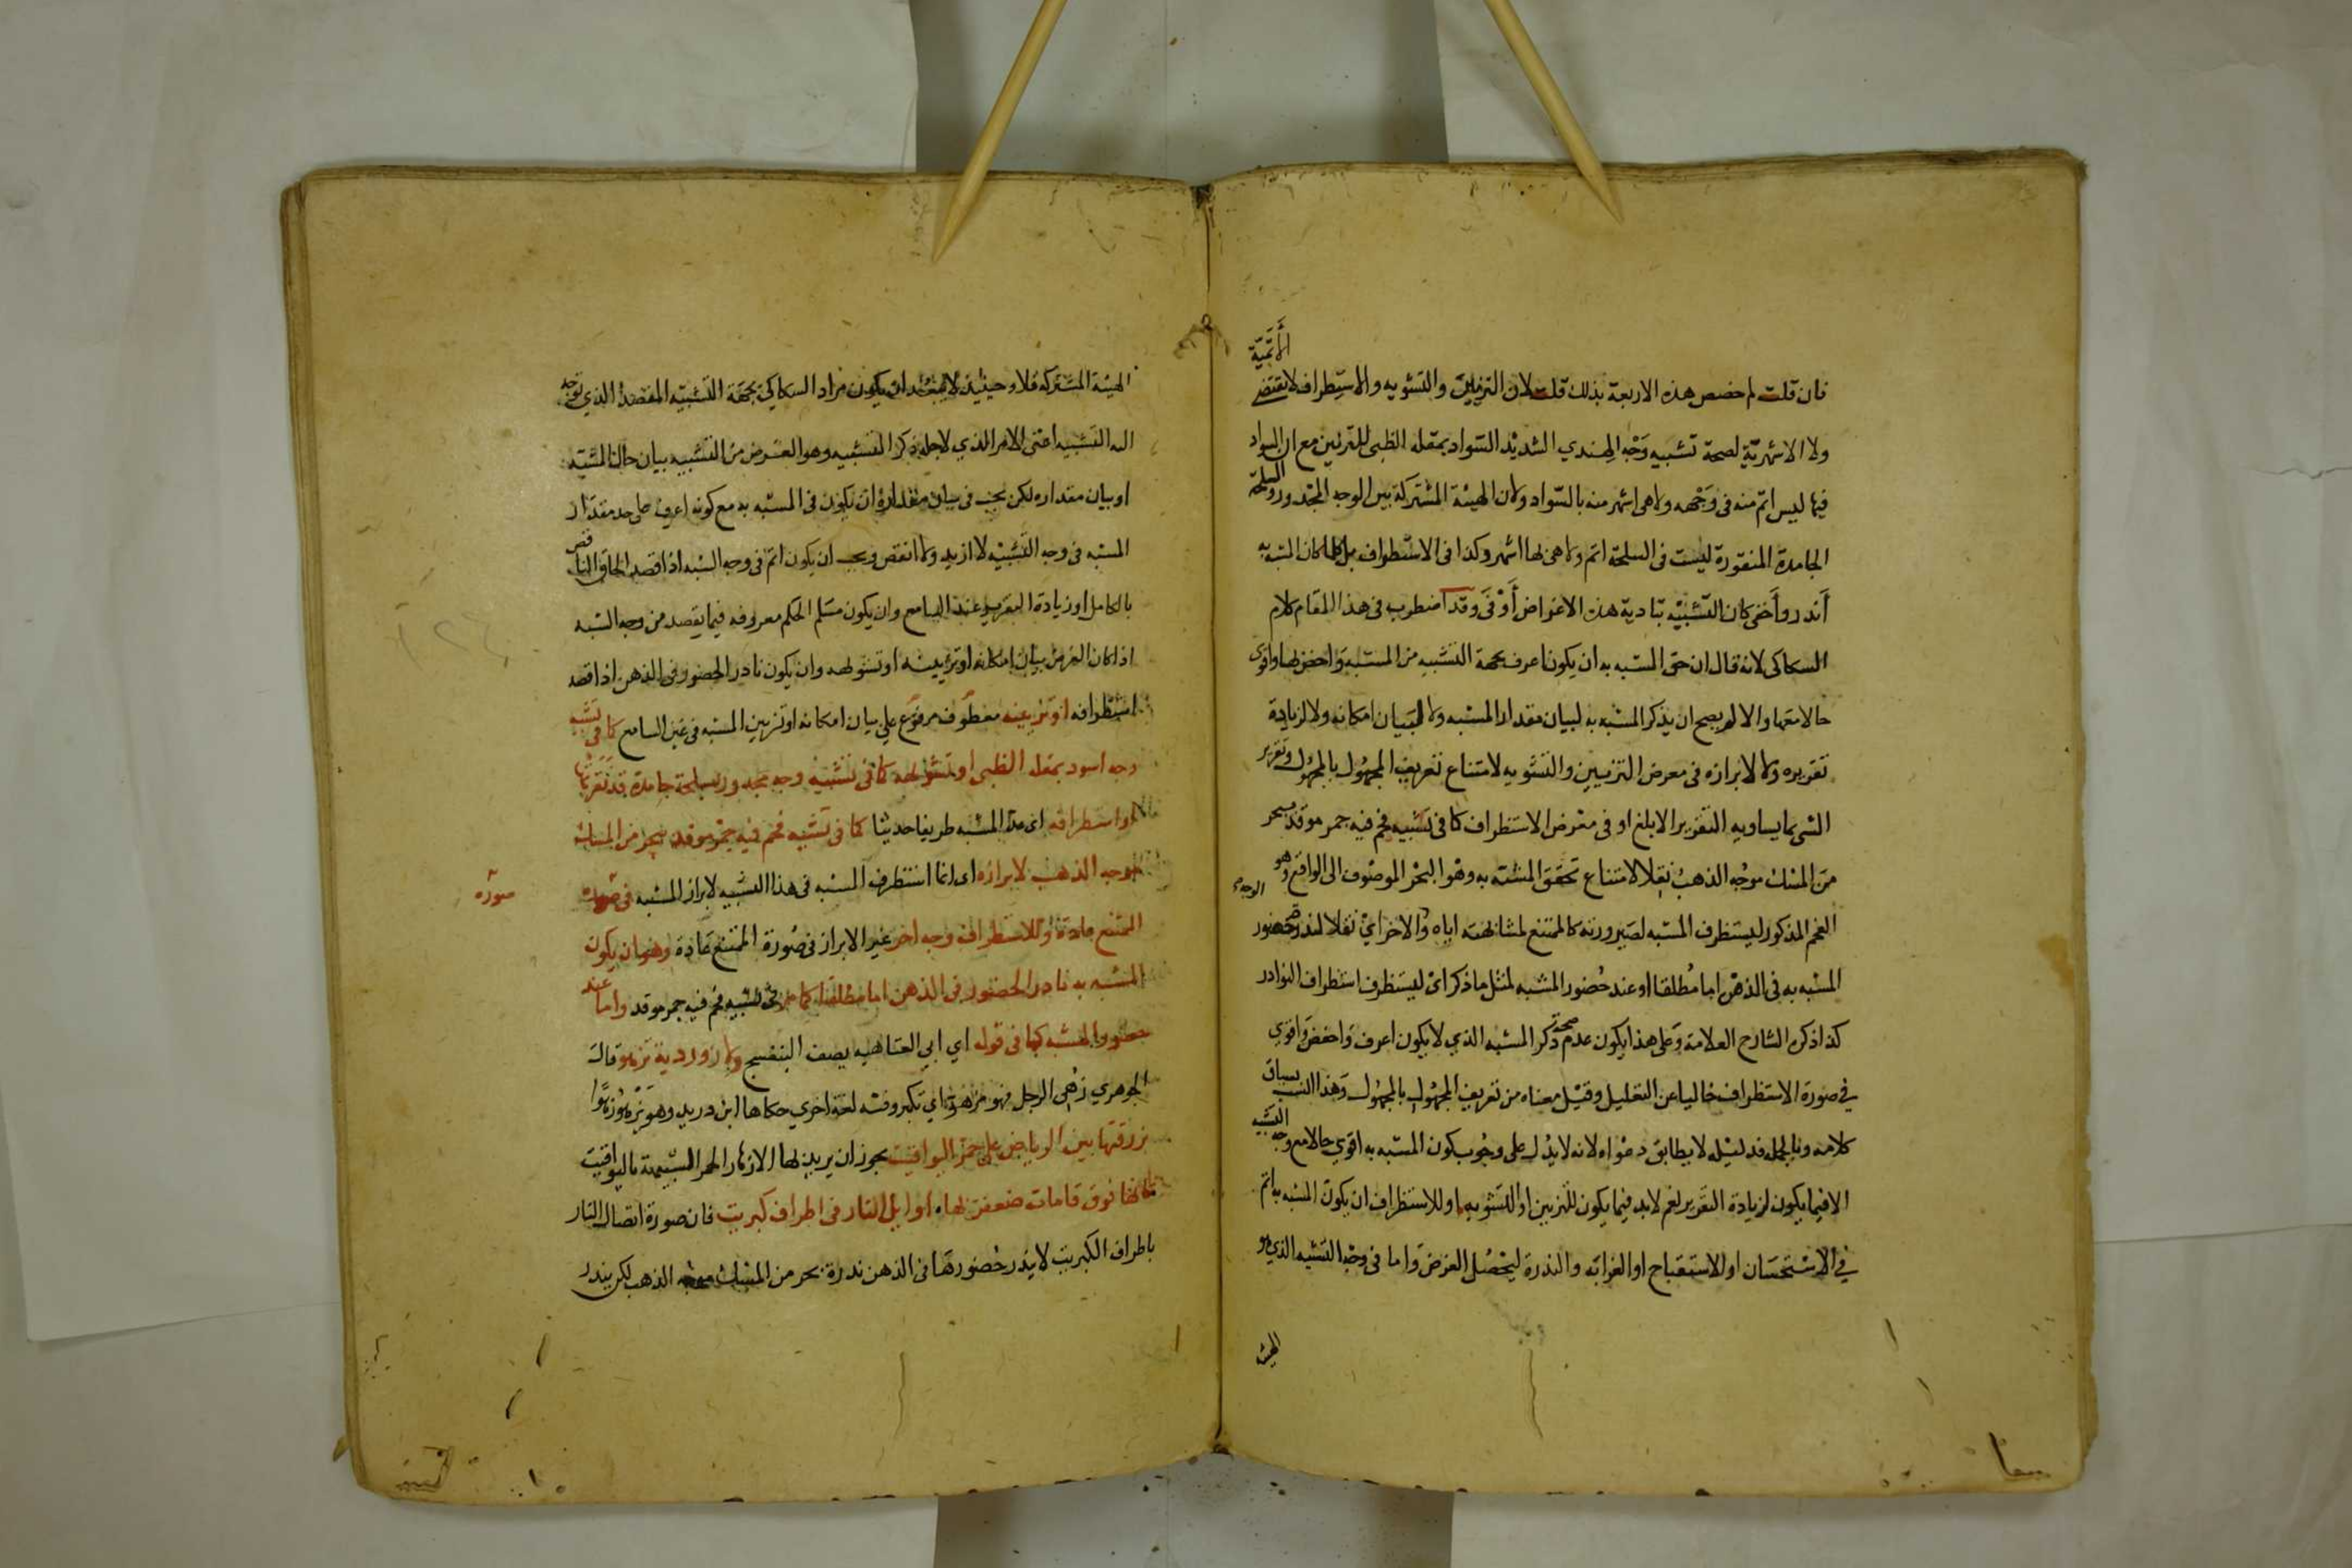 فان قلت لم خصص هذه الاربعة بذلك قلت لان التزيين والتشويه والاستطراف لا يقتضى الأتمية
ولا الاشهرية لصحة تشبيه وجه الهندي الشديد السواد بمقلة الظبى للتزيين مع ان السواد
فيها ليس اتم منه فى وجهه ولا هى اشهر منه بالسواد ولان الهيئة المشتركة بين الوجه المجدور والسلحة
الجامدة المنقورة ليست فى السلحة اتم ولا هى لها اشهر وكذا فى الاستطراف بل كلما كان المشبه به
أندر وأخفى كان التشبيه بتادية هذه الاغراض أوفى وقد اضطرب فى هذا المقام كلام
السكاكى لانه قال ان حق المشبه به ان يكون اعرف بجهة التشبيه من المشبه واخص بها واقوى
حالا معها والا لم يصح ان يذكر المشبه به لبيان مقدار المشبه ولا لبيان امكانه ولا لزيادة
تقريره ولا لابرازه فى معرض التزيين والتشويه لامتناع تعريف المجهول بالمجهول وتقرير
الشى بما يساويه التقرير الابلغ او فى معرض الاستطراف كما فى تشبيه فحم فيه جمر موقد ببحر
من المسك موجه الذهب نقلا لامتناع تحقق المشبه به وهو البحر الموصوف الى الواقع وهو
الفحم المذكور ليستطرف المشبه لصيرورته كالممتنع لمشابهته اياه والوجه الاخر اي نقلا لندرة حضور
المشبه به فى الذهن اما مطلقا او عند حضور المشبه لمثل ما ذكر اى ليستطرف استطراف النوادر
كذا ذكره الشارح العلامة وعلى هذا يكون عدم صحة ذكر المشبه الذي لا يكون اعرف واخص واقوى
في صورة الاستطراف خاليا عن التعليل وقيل معناه من تعريف المجهول بالمجهول وهذا انسب بسياق
كلامه وبالجملة فدليله لا يطابق دعواه لانه لا يدل على وجوب كون المشبه به اقوي حالا مع وجه التشبيه
الا فيما يكون لزيادة التقرير نعم لابد فيما يكون للتزيين او للتشويه او للاستطراف ان يكون المشبه به اتم
في الاستحسان او الاستقباح او الغرابة والندرة ليحصل الغرض واما فى وجه التشبيه الذي هو
الهيئة
الهيئة المشتركة فلا وحينئذ لا يبعد ان يكون مراد السكاكي بجهة التشبيه المقصد الذي توجه
اليه التشبيه اعنى الامر الذي لاجله ذكر التشبيه وهو الغرض من التشبيه بيان حال المشبه
او بيان مقداره لكن يجب فى بيان مقداره ان يكون فى المشبه به مع كونه اعرف على حد مقدار
المشبه فى وجه التشبيه لا ازيد ولا انقص ويجب ان يكون اتم فى وجه الشبه اذا قصد الحاق الناقص
بالكامل او زيادة التقرير عند السامع وان يكون مسلم الحكم معروفه فيما يقصد من وجه الشبه
اذا كان الغرض بيان امكانه او تزيينه او تشويهه وان يكون نادر الحضور فى الذهن اذا قصد
استطرافه او تزيينه معطوف مرفوع على بيان امكانه او تزيين المشبه فى عين السامع كما فى تشبيه
وجه اسود بمقلة الظبى او تشويهه كما فى تشبيه وجه مجدور بسلحة جامدة قد نقرتها
او استطرافه اى عد المشبه طريفا حديثا كما فى تشبيه فحم فيه جمر موقد ببحر من المسك
موجه الذهب لابرازه اى انما استطرف المشبه فى هذا التشبيه لابراز المشبه فى صورة
صورة
الممتنع عادة وللاستطراف وجه اخر غير الابراز فى صورة الممتنع عادة وهو ان يكون
المشبه به نادر الحضور فى الذهن اما مطلقا كما مر فى تشبيه فحم فيه جمر موقد واما عند
حضور المشبه كما فى قوله اي ابي العتاهيه يصف البنفسج ولازوردية تزهو قال
الجوهري زهى الرجل فهو مزهو اي تكبر وفيه لغة اخرى حكاها ابن دريد وهو يزهو زهوا
بزرقتها بين الرياض على حمر اليواقيت يجوز ان يريد بها الازهار الحمر الشبيهة باليواقيت
كانها فوق قامات ضعفن بها، اوايل النار فى اطراف كبريت فان صورة اتصال النار
باطراف الكبريت لا يندر حضورها فى الذهن ندرة بحر من المسك موجه الذهب لكن يندر